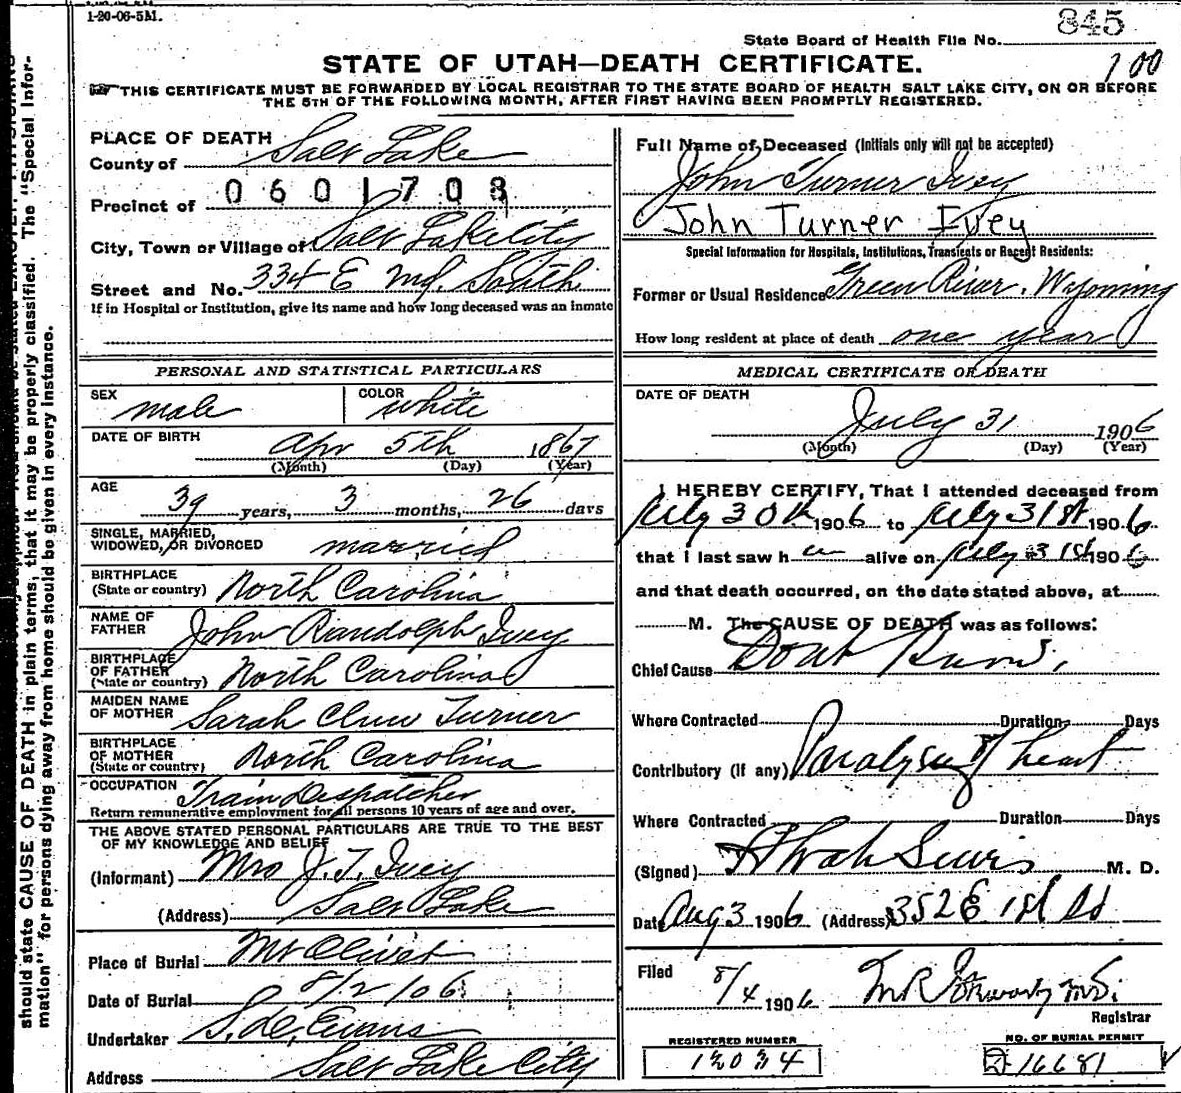 1-20-06-5M.
845
State Board of Health File No.
STATE OF UTAH—DEATH CERTIFICATE.
100
THIS CERTIFICATE MUST BE FORWARDED BY LOCAL REGISTRAR TO THE STATE BOARD OF HEALTH SALT LAKE CITY, ON OR BEFORE
THE 5TH OF THE FOLLOWING MONTH, AFTER FIRST HAVING BEEN PROMPTLY REGISTERED.
should state CAUSE OF DEATH in plain terms, that it may be properly classified. The "Special Infor-
mation" for persons dying away from home should be given in every instance.
PLACE OF DEATH
County of Salt Lake
0601708
Precinct of
City, Town or Village of Salt Lake City
Street and No. 334 E South
If in Hospital or Institution, give its name and how long deceased was an inmate
PERSONAL AND STATISTICAL PARTICULARS
SEX male COLOR white
DATE OF BIRTH Apr 5th 1867
(Month) (Day) (Year)
AGE 39 years, 3 months, 26 days
SINGLE, MARRIED,
WIDOWED, OR DIVORCED married
BIRTHPLACE
(State or country) North Carolina
NAME OF
FATHER John Randolph Ivey
BIRTHPLACE
OF FATHER
(State or country) North Carolina
MAIDEN NAME
OF MOTHER Sarah Turner
BIRTHPLACE
OF MOTHER
(State or country) North Carolina
OCCUPATION Train Despatcher
Return remunerative employment for all persons 10 years of age and over.
THE ABOVE STATED PERSONAL PARTICULARS ARE TRUE TO THE BEST
OF MY KNOWLEDGE AND BELIEF
(Informant) Mrs J. T. Ivey
(Address) Salt Lake
Place of Burial Mt Olivet
Date of Burial 8/2/06
Undertaker Evans
Address Salt Lake City
Full Name of Deceased (Initials only will not be accepted)
John Turner Ivey
John Turner Ivey
Special Information for Hospitals, Institutions, Transients or Recent Residents:
Former or Usual Residence Green River. Wyoming
How long resident at place of death one year
MEDICAL CERTIFICATE OF DEATH
DATE OF DEATH
July 31 1906
(Month) (Day) (Year)
I HEREBY CERTIFY, That I attended deceased from
July 30th 1906 to July 31st 1906
that I last saw h alive on July 31st 1906
and that death occurred, on the date stated above, at
M. The CAUSE OF DEATH was as follows:
Chief Cause
Where Contracted Duration Days
Contributory (if any) Paralysis of heart
Where Contracted Duration Days
(Signed) M. D.
Date Aug 3 1906 (Address) 352 E 1st So
Filed 8/4 1906
Registrar
REGISTERED NUMBER
12034
NO. OF BURIAL PERMIT
D 16681